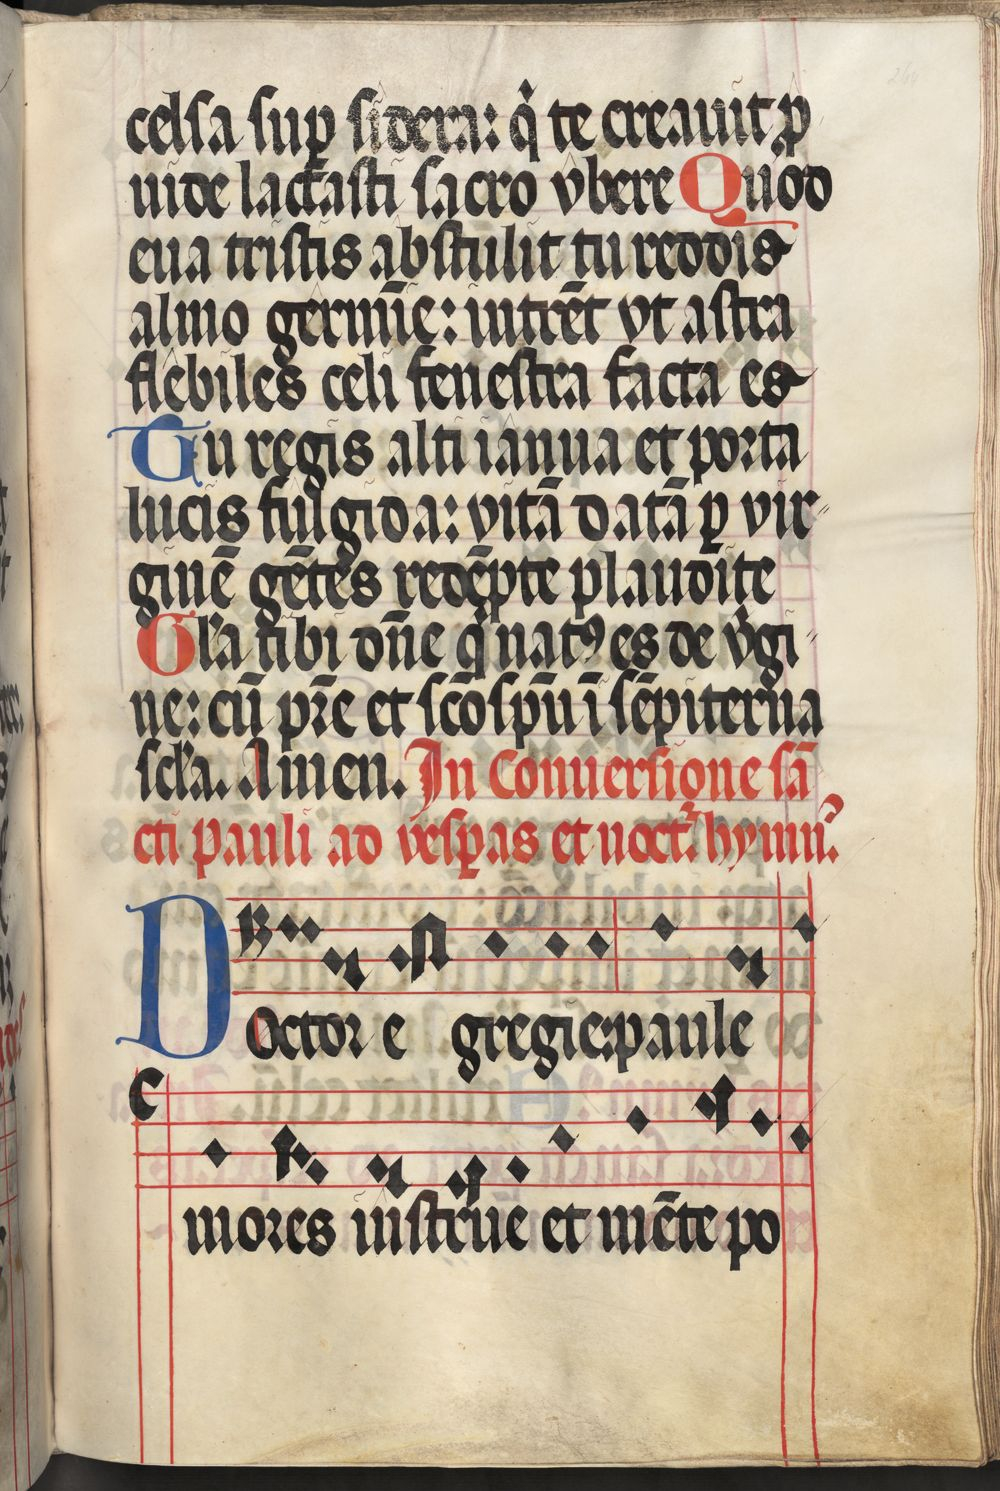 celsa sup sidera: q̇ te creauit p
uide lactasti sacro vbere Quod
eua tristis abstulit tu reddis
almo germīe: intrēt vt astra
flebiles celi fenestra facta es
Tu regis alti ianua et porta
lucis fulgida: vitā datā p vir
ginē gētes redēpte plaudite
Gl̄a tibi dn̄e q̇ natꝰ es de v̇gi
ne: cū pr̄e et scō spū ī sēpiterna
scl̄a. Amen. In Conuersione sā
cti pauli ad vesp̄as et noct. hymn̄.
Doctor e gregie: paule
mores instrue et mēte po